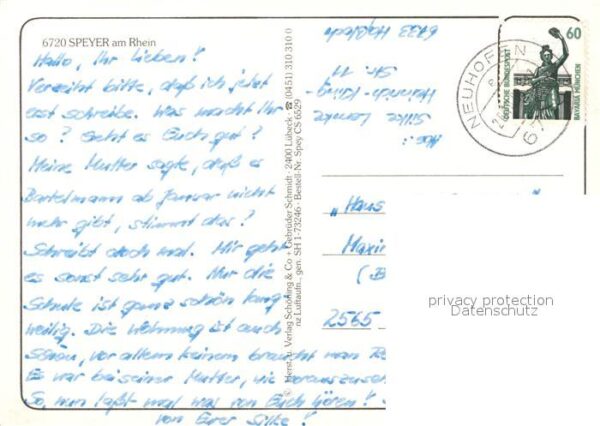 6720 SPEYER am Rhein
Hallo, Ihr Lieben!
Verzeiht bitte, daß ich jetzt
erst schreibe. Was macht Ihr
so? Geht es Euch gut?
Meine Mutter sagte, daß es
Bartelmann ab Januar nicht
mehr gibt, stimmt das?
Schreibt doch mal. Mir geht
es sonst sehr gut. Nur die
Schule ist ganz schön lang-
weilig. Die Wohnung ist auch
schön, vor allem keinem braucht man
Es war bei seiner Mutter, wie
So, nun laßt mal was von Euch hören!
von Eurer Silke!
© Herst. u. Verlag Schöning & Co + Gebrüder Schmidt · 2400 Lübeck · ☎ (0451) 310 310 0
nz Luftaufn., gen. SH 1-73246 · Bestell-Nr. Spey CS 6529
Abs.:
Silke
Heinrich-
Str. 11
NEUHOFEN
60
DEUTSCHE BUNDESPOST
BAVARIA MÜNCHEN
"Haus
Maxim
(B
2565
privacy protection
Datenschutz